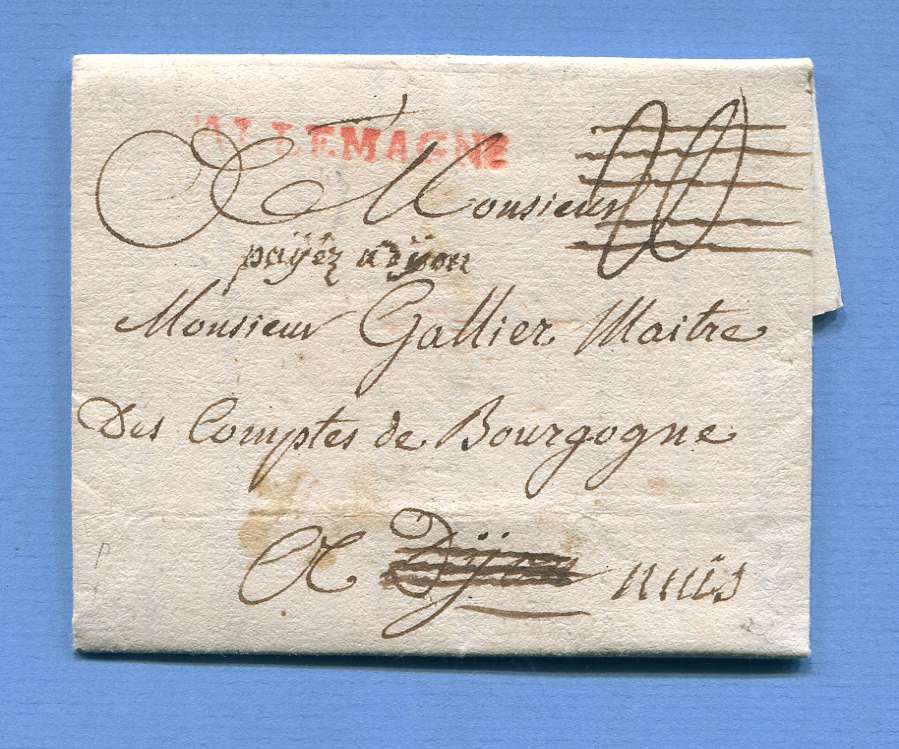 ALLEMAGNE
A Monsieur
payéz a dijon
Monsieur Gallier Maitre
Des Comptes de Bourgogne
A Dijon nuis